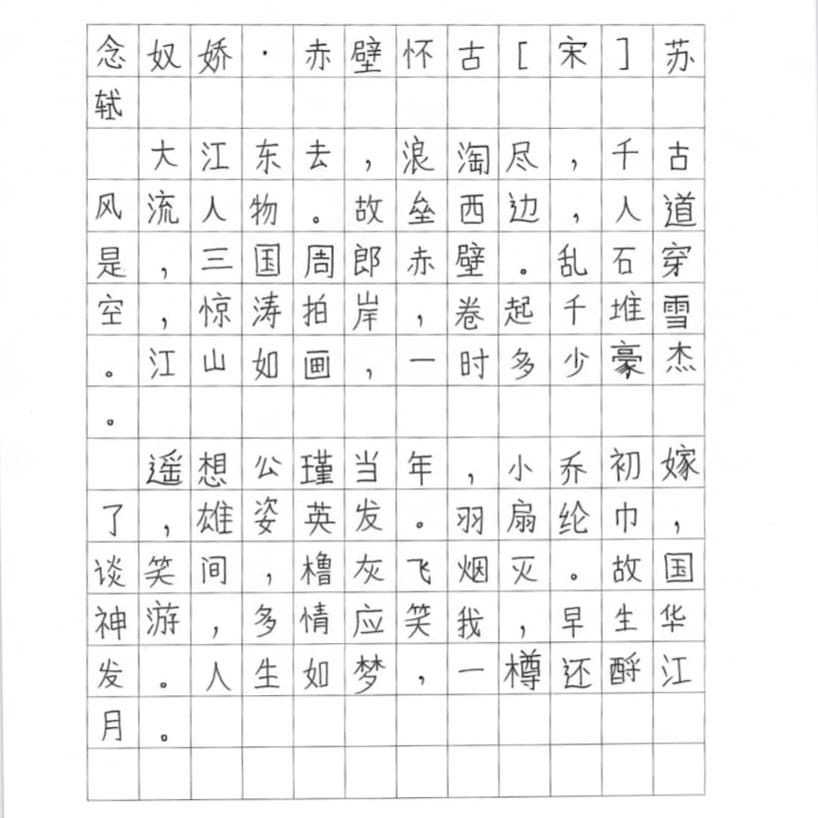 念奴娇·赤壁怀古[宋]苏
轼
大江东去，浪淘尽，千古
风流人物。故垒西边，人道
是，三国周郎赤壁。乱石穿
空，惊涛拍岸，卷起千堆雪
。江山如画，一时多少豪杰
。
遥想公瑾当年，小乔初嫁
了，雄姿英发。羽扇纶巾，
谈笑间，橹灰飞烟灭。故国
神游，多情应笑我，早生华
发。人生如梦，一樽还酹江
月。